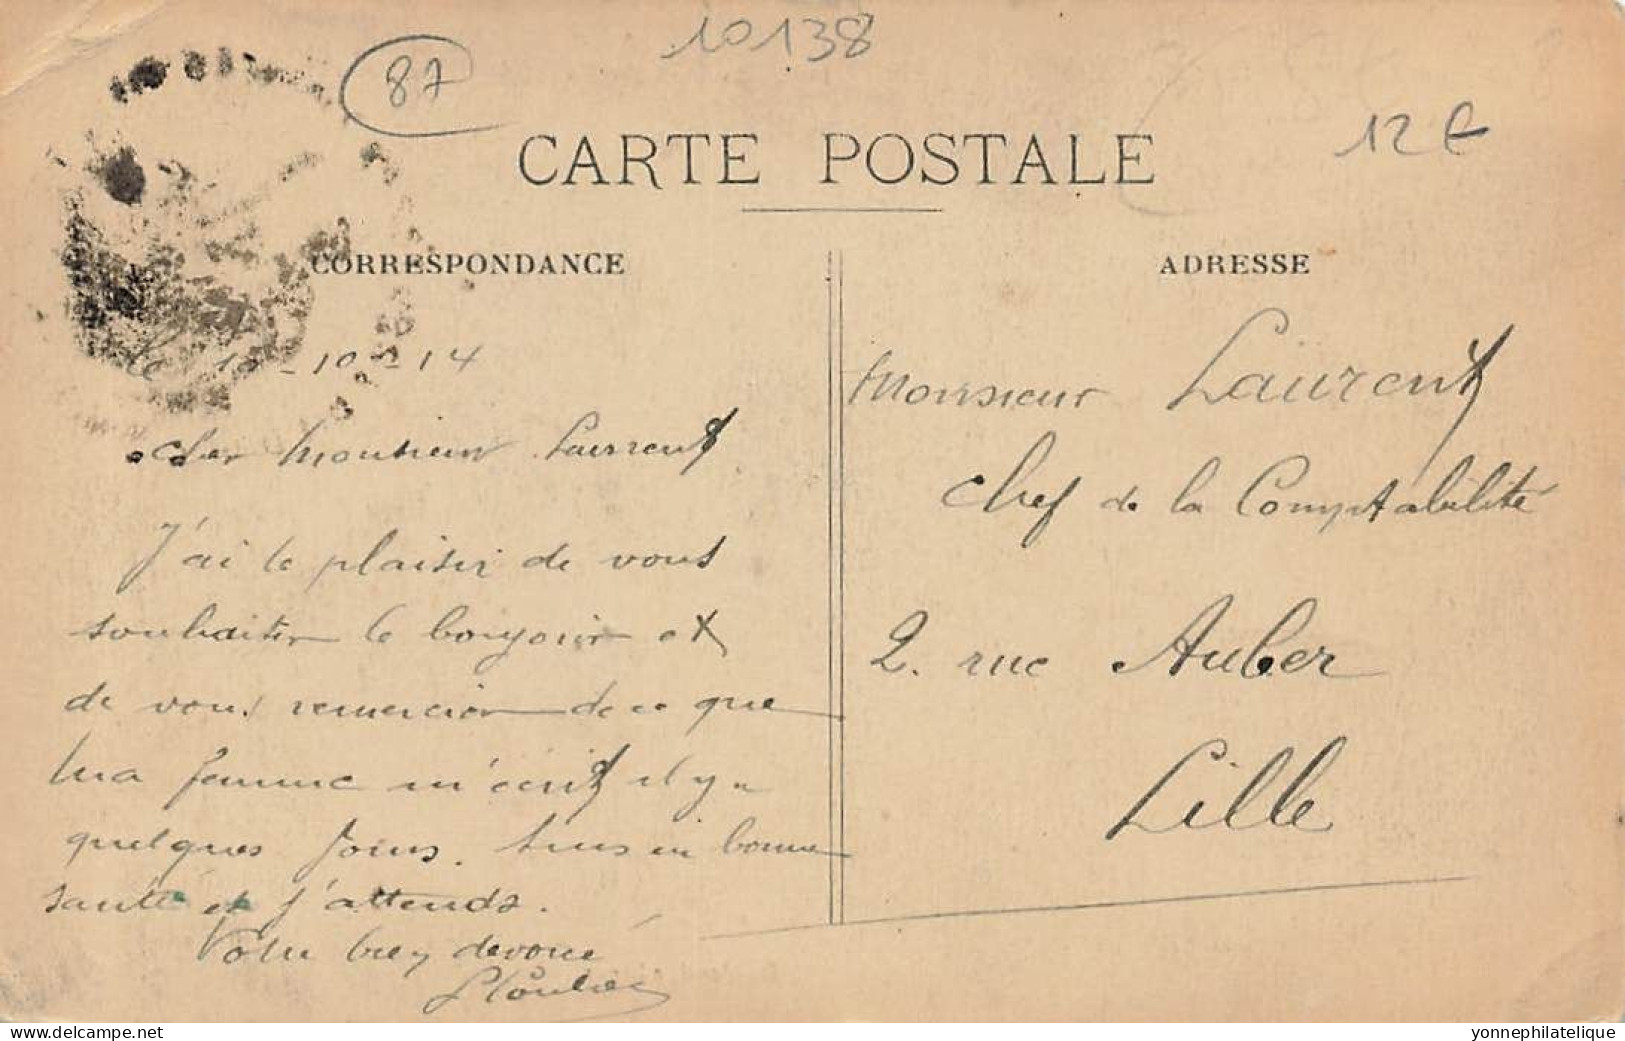 87
10138
12 €
CARTE POSTALE
CORRESPONDANCE
ADRESSE
le 10-14
cher Monsieur Laurent
J'ai le plaisir de vous
souhaiter le bonjour et
de vous remercier de ce que
Ma femme m'écrit il y a
quelques jours. suis en bonne
santé et j'attends.
Votre bien dévoué
Monsieur Laurent
chef de la Comptabilité
2. rue Auber
Lille
www.delcampe.net
yonnephilatelique